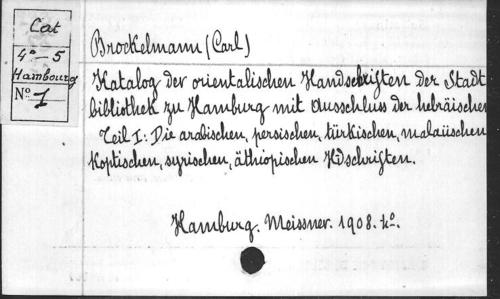 Cat
4º-5
Hambourg
Nº 1
Brockelmann (Carl)
Katalog der orientalischen Handschriften der Stadt
bibliothek zu Hamburg mit Ausschluss der hebräischen
Teil I: Die arabischen, persischen, türkischen, malaiischen
koptischen, syrischen, äthiopischen Hdschriften.
Hamburg. Meissner. 1908. 4º.